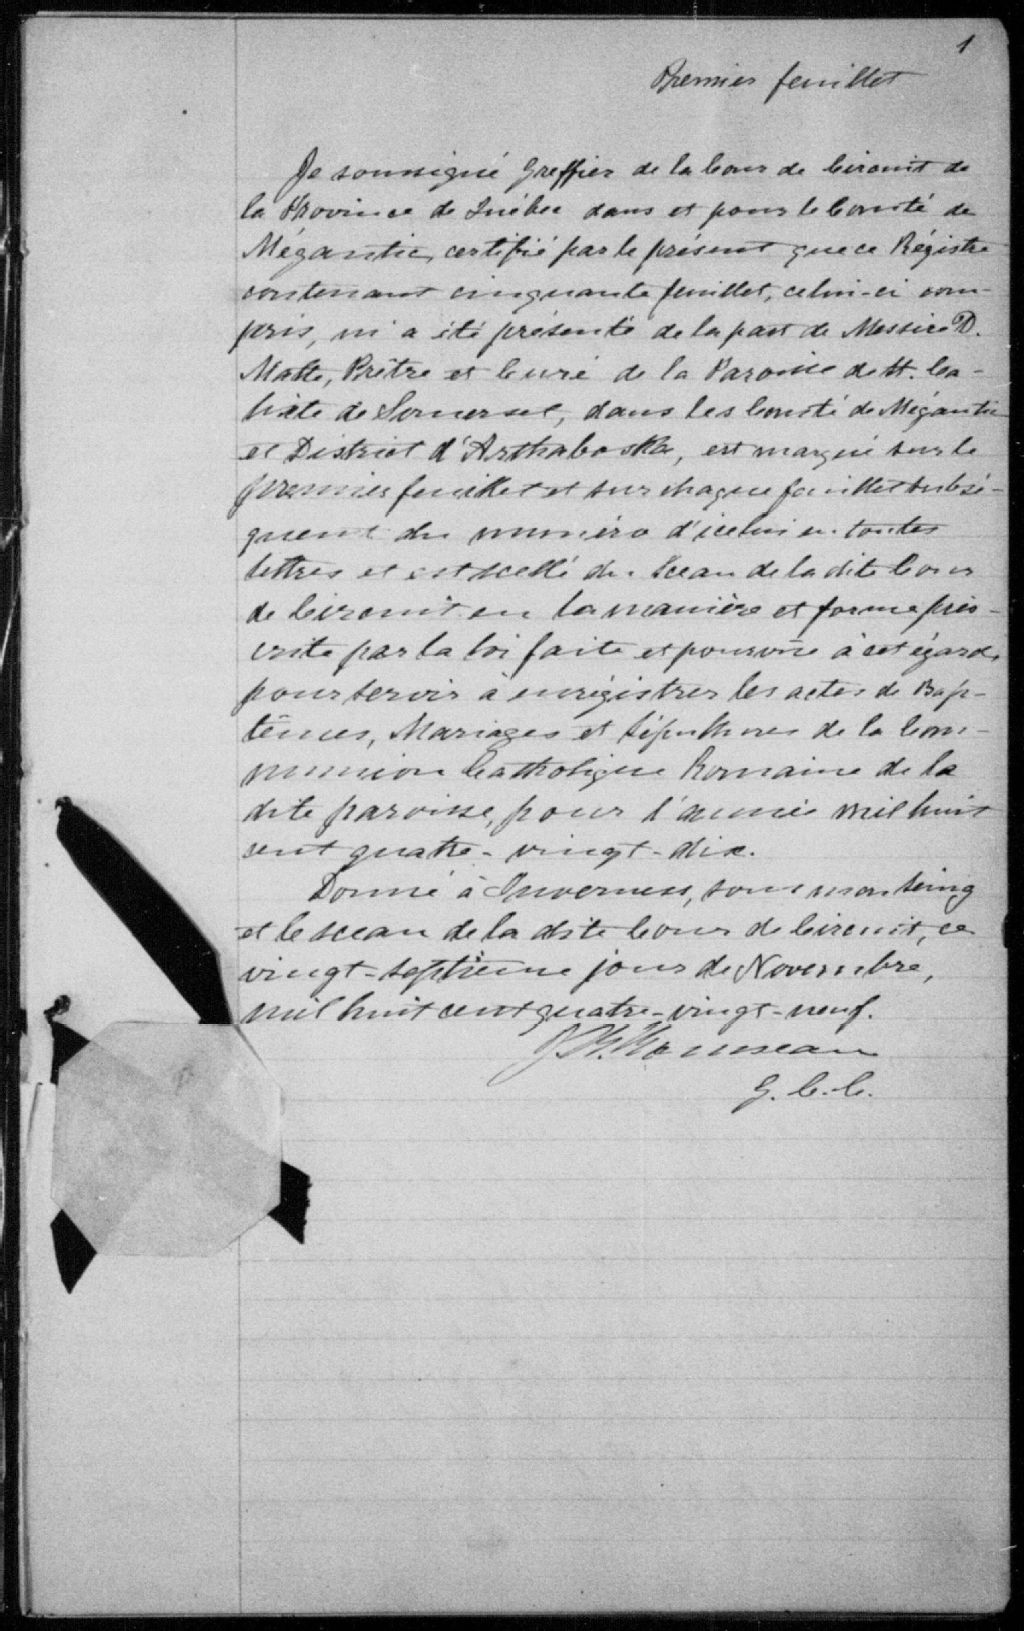 1
Premier feuillet
Je soussigné Greffier de la Cour de Circuit de
la Province de Québec dans et pour le Comté de
Mégantic, certifié par le présent que ce Régistre
contenant cinquante feuillet, celui-ci com-
pris, m'a été présenté de la part de Messire D.
Matte, Prêtre et Curé de la Paroisse de St. Ca-
lixte de Somerset, dans les Comté de Mégantic
et District d'Arthabaska, est marqué sur le
premier feuillet et sur chaque feuillet subsé-
quent du numéro d'icelui en toutes
lettres et est scellé du Sceau de la dite Cour
de Circuit en la manière et forme pres-
crite par la loi faite et pourvue à cet égard,
pour servir à enrégistrer les actes de Bap-
têmes, Mariages et Sépultures de la Com-
munion Catholique Romaine de la
dite paroisse, pour l'année mil huit
cent quatre-vingt-dix.
Donné à Inverness, sous mon seing
et le sceau de la dite Cour de Circuit, ce
vingt-septième jour de Novembre,
mil huit cent quatre-vingt-neuf.
Rousseau
G. C. C.